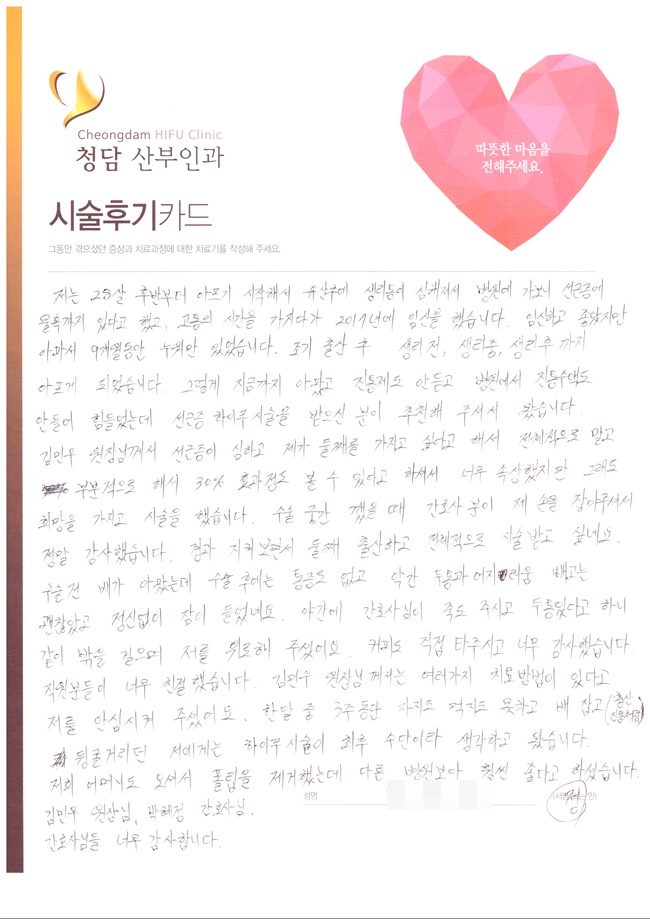 Cheongdam HIFU Clinic
청담 산부인과
따뜻한 마음을
전해주세요.
시술후기카드
그동안 겪으셨던 증상과 치료과정에 대한 치료기를 작성해 주세요.
저는 28살 후반부터 아프기 시작해서 유산후에 생리통이 심해져서 병원에 가보니 선근증에
물혹까지 있다고 했고, 고통의 시간을 가지다가 2017년에 임신을 했습니다. 임신하고 좋았지만
아파서 9개월동안 누워만 있었습니다. 조기 출산 후 생리전, 생리중, 생리후 까지
아프게 되었습니다. 그렇게 지금까지 아팠고 진통제도 안듣고 병원에서 진통수액도
안들어 힘들었는데 선근증 하이푸시술을 받으신 분이 추천해 주셔서 왔습니다.
김민우 원장님께서 선근증이 심하고 제가 둘째를 가지고 싶다고 해서 전체적으로 말고
부분적으로 해서 30% 효과정도 볼 수 있다고 하셔서 너무 속상했지만 그래도
희망을 가지고 시술을 했습니다. 수술 중간 깼을 때 간호사 분이 제 손을 잡아주셔서
정말 감사했습니다. 경과 지켜보면서 둘째 출산하고 전체적으로 시술받고 싶네요.
수술전 배가 아팠는데 수술 후에는 통증도 없고 약간 두통과 어지러움 빼고는
괜찮았고 정신없이 잠이 들었네요. 야간에 간호사님이 죽도 주시고 두통있다고 하니
같이 밖을 걸으며 저를 위로해 주셨어요. 커피도 직접 타주시고 너무 감사했습니다.
직원분들이 너무 친절했습니다. 김민우 원장님께서는 여러가지 치료방법이 있다고
저를 안심시켜 주셨어요. 한달 중 3주동안 자지도 먹지도 못하고 배 잡고 (출산
진통처럼)
뒹굴거리던 저에게는 하이푸시술이 최후 수단이라 생각하고 왔습니다.
저희 어머니도 오셔서 폴립을 제거했는데 다른 병원보다 훨씬 좋다고 하셨습니다.
성명
김민우 원장님, 박혜정 간호사님.
간호사님들 너무 감사합니다.